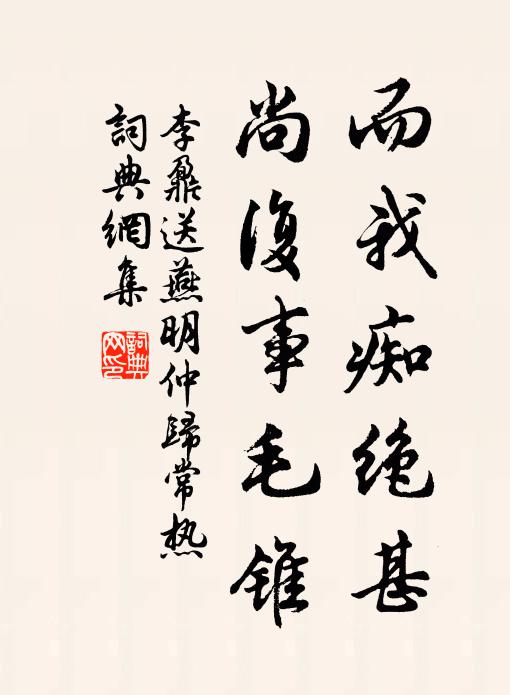 而我痴绝甚
尚復事毛錐
李鼐送燕明仲歸常热
詞典網集
詞典網印